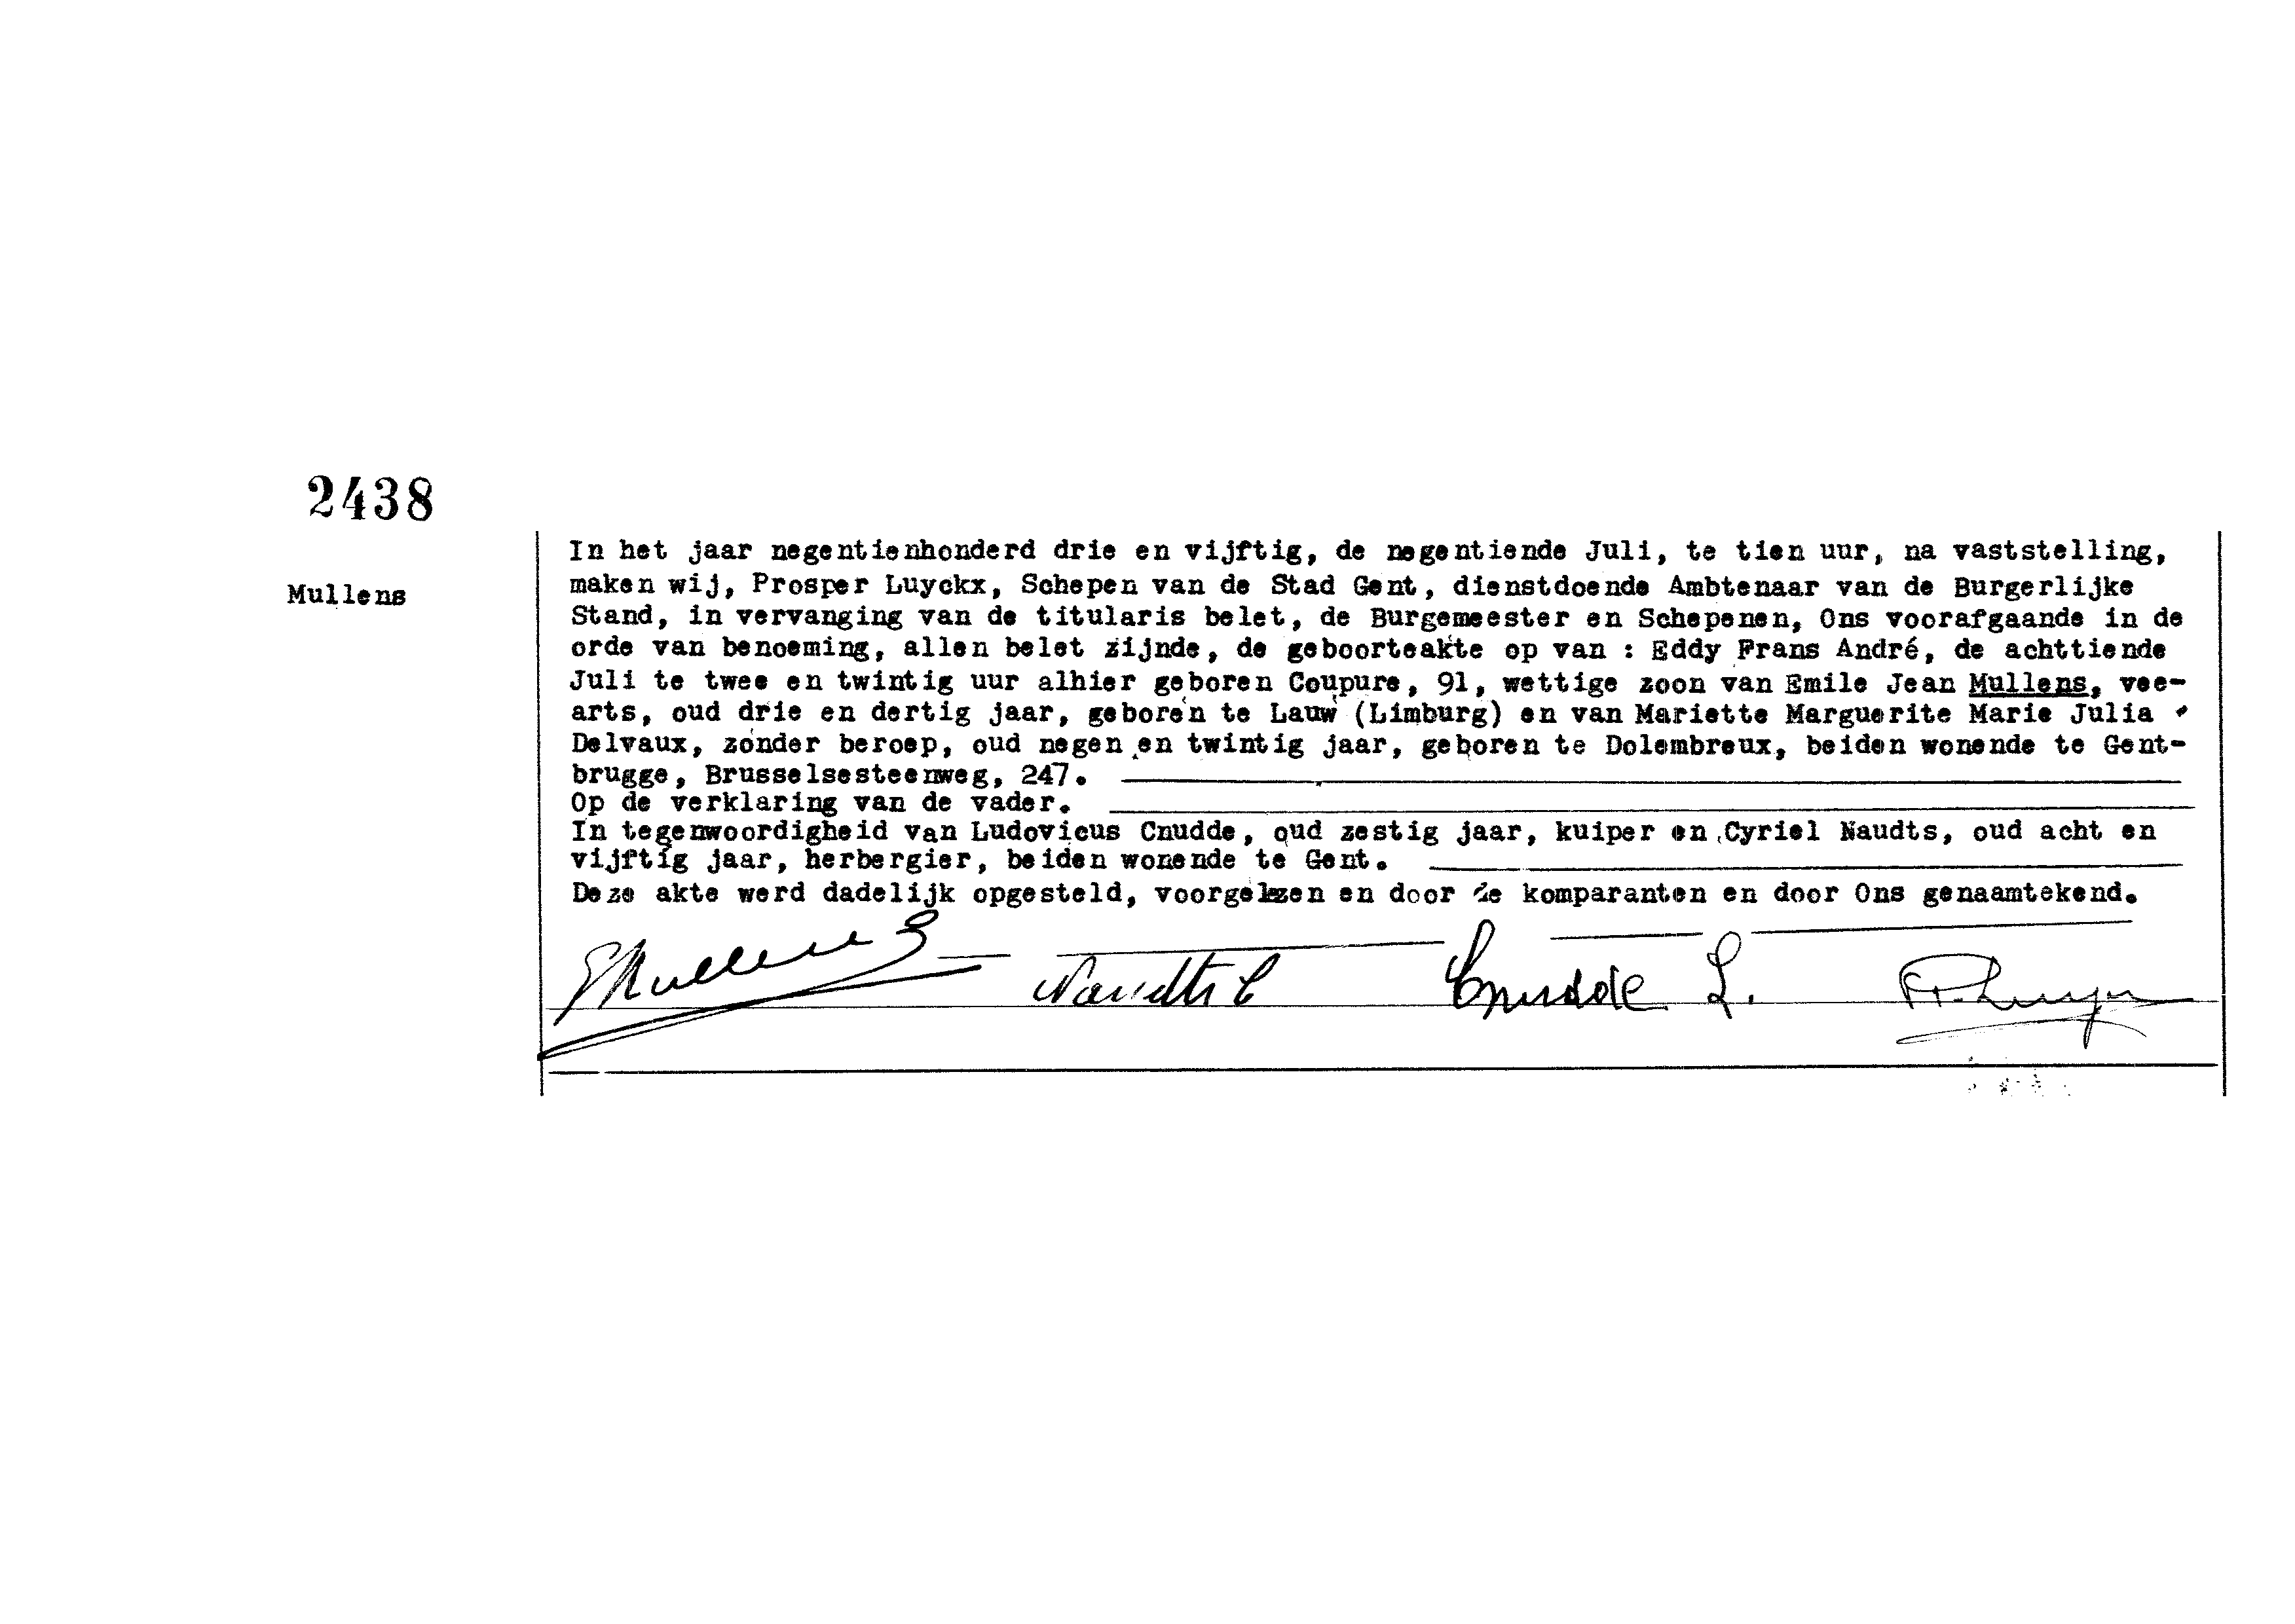 2438
Mullens
In het jaar negentienhonderd drie en vijftig, de negentiende Juli, te tien uur, na vaststelling,
maken wij, Prosper Luyckx, Schepen van de Stad Gent, dienstdoende Ambtenaar van de Burgerlijke
Stand, in vervanging van de titularis belet, de Burgemeester en Schepenen, Ons voorafgaande in de
orde van benoeming, allen belet zijnde, de geboorteakte op van : Eddy Frans André, de achttiende
Juli te twee en twintig uur alhier geboren Coupure, 91, wettige zoon van Emile Jean Mullens, vee-
arts, oud drie en dertig jaar, geboren te Lauw (Limburg) en van Mariette Marguerite Marie Julia
Delvaux, zonder beroep, oud negen en twintig jaar, geboren te Dolembreux, beiden wonende te Gent-
brugge, Brusselsesteenweg, 247.
Op de verklaring van de vader.
In tegenwoordigheid van Ludovicus Cnudde, oud zestig jaar, kuiper en Cyriel Naudts, oud acht en
vijftig jaar, herbergier, beiden wonende te Gent.
Deze akte werd dadelijk opgesteld, voorgelezen en door de komparanten en door Ons genaamtekend.
Naudts C Cnudde L.